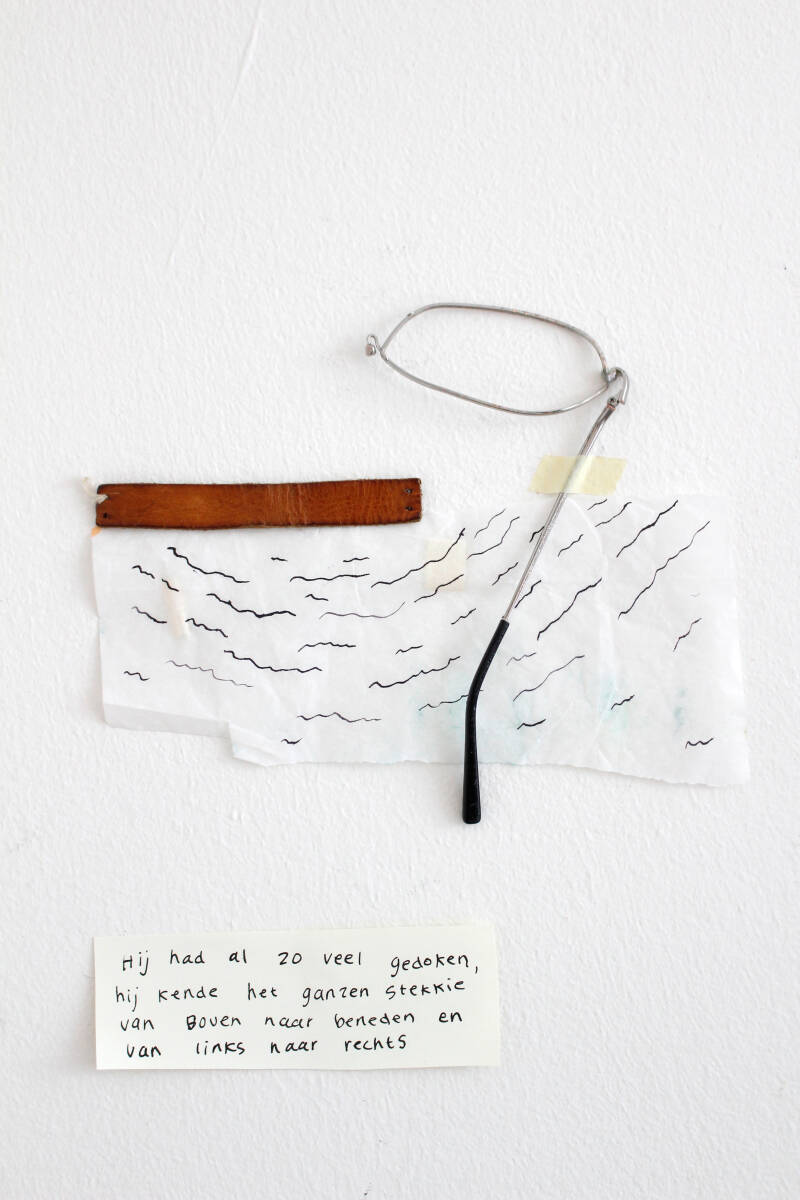 Hij had al zo veel gedoken,
hij kende het ganzen stekkie
van Boven naar beneden en
van links naar rechts